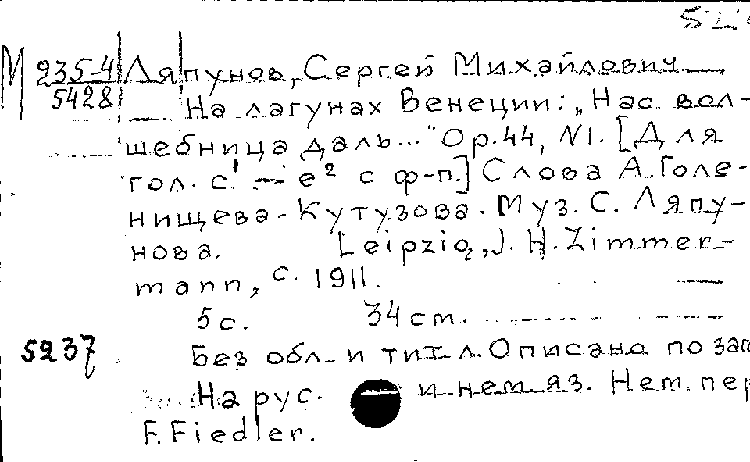 М 235-4 Ляпунов, Сергей Михайлович
5428 На лагунах Венеции: „Нас вол-
шебница даль..." Ор. 44, N1. [Для
гол. с¹ — e² с ф-п.] Слова А. Голе-
нищева-Кутузова. Муз. С. Ляпу-
нова. Leipzig, J. H. Zimmer-
mann, c. 1911.
5 с. 34 cm.
5237 Без обл. и тит. л. Описано по заг
На рус. и нем. яз. Нем. пер
F. Fiedler.